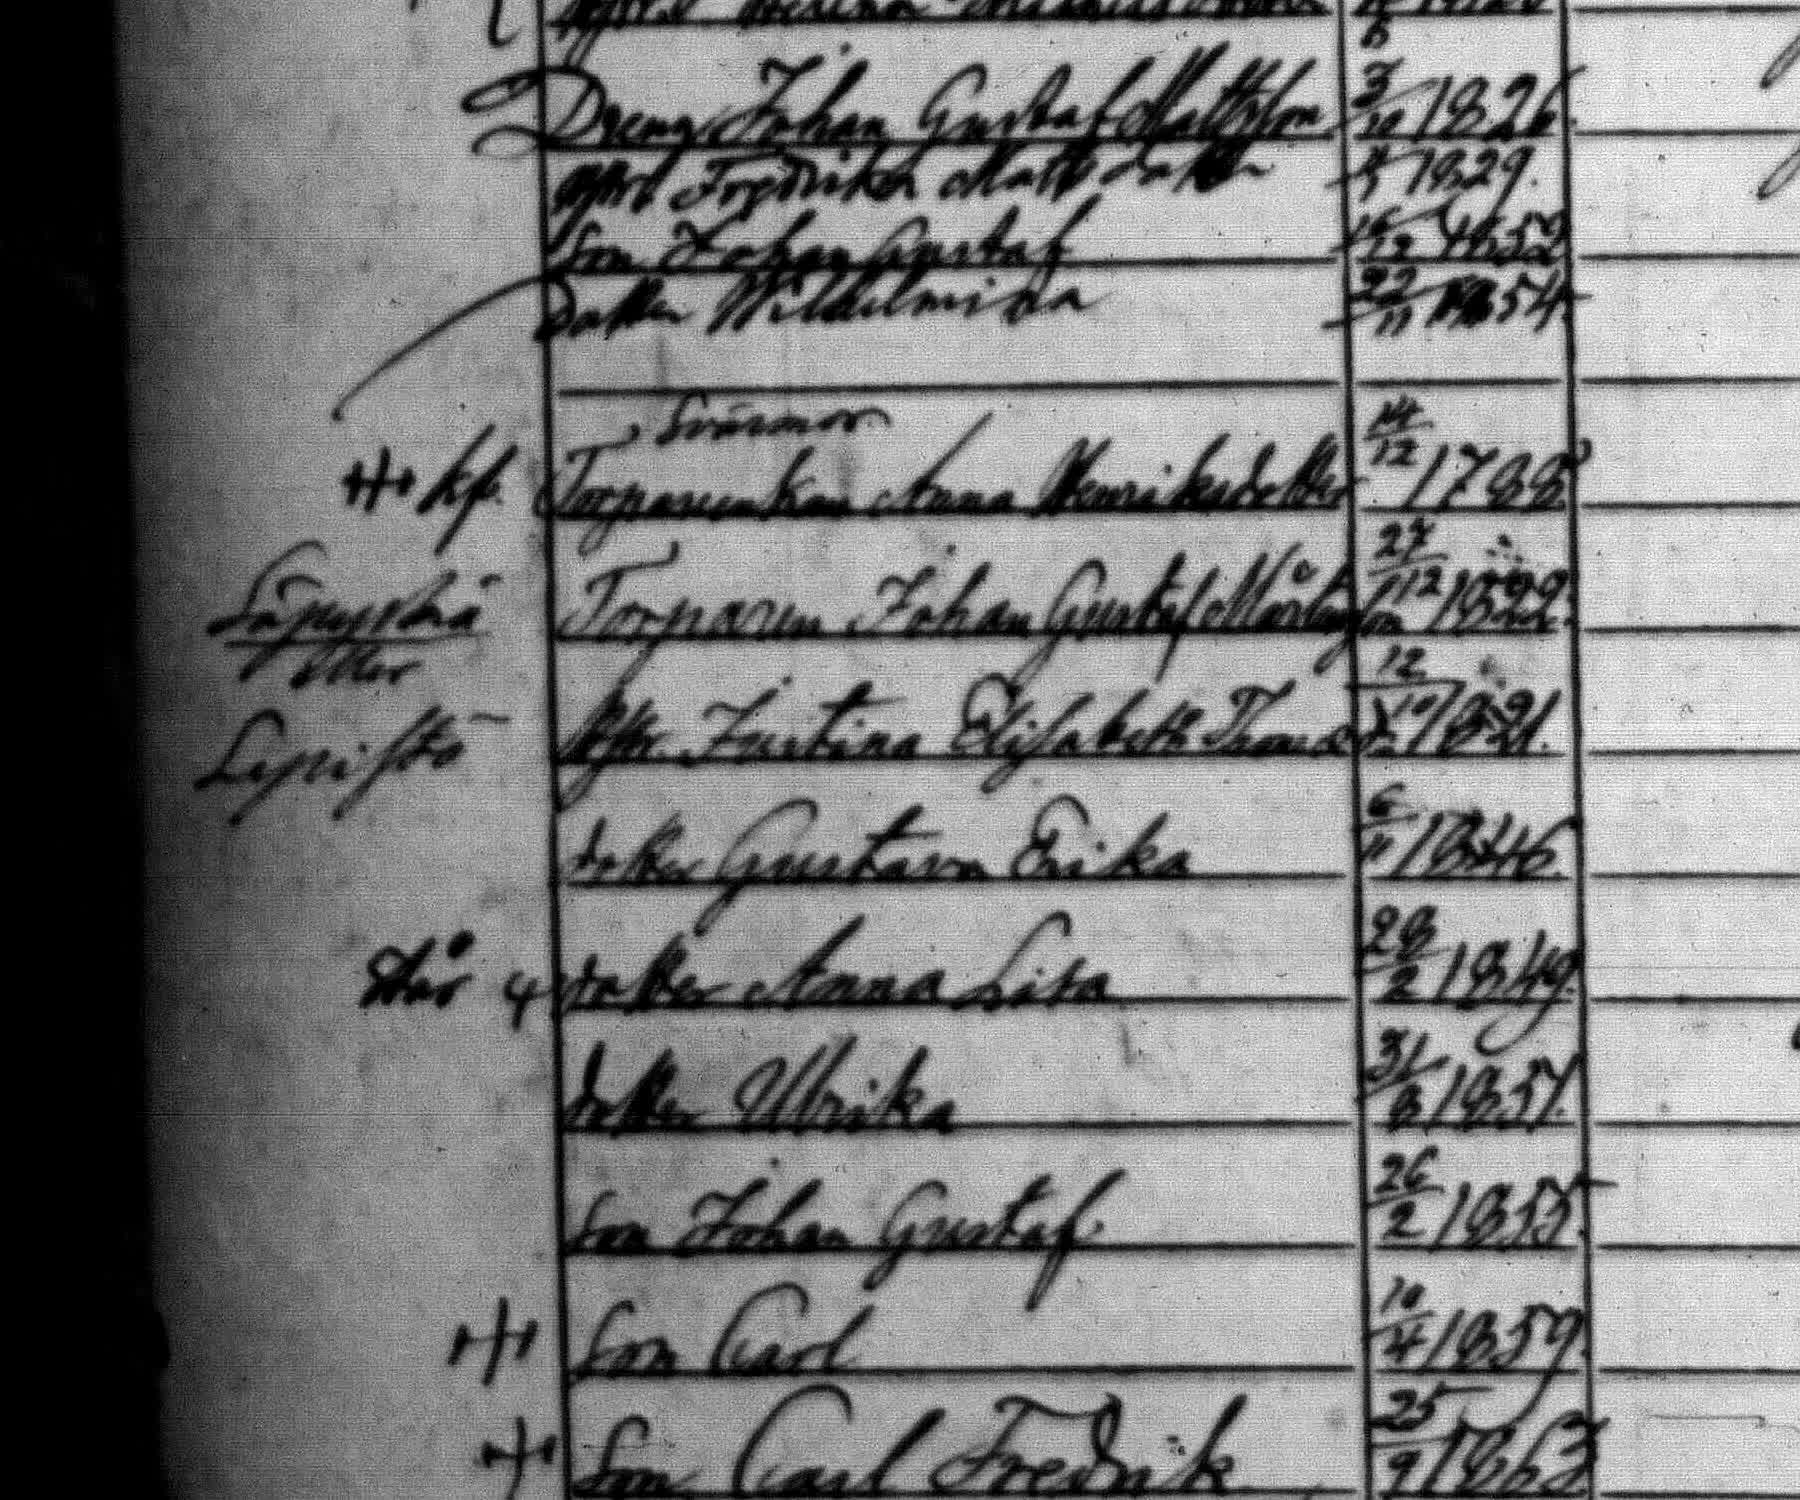 Dreng Johan Gustaf Mattsson 3/11 1826.
Hstr Fredrika Mattsdotter 1829.
Son Johan Gustaf 1852
Dotter Wilhelmina 22/11 1854
Svärmor
kf. Torparenkan Anna Henriksdotter 14/12 1788
Torparen Johan Gustaf Mårtensson 27/12 1822.
eller
Lepistö Hstr. Justina Elisabeth Thomasd 12/10 1821.
dotter Gustava Erika 6/11 1846.
dotter Anna Lisa 28/2 1849.
dotter Ulrika 31/8 1851.
Son Johan Gustaf. 26/2 1855.
Son Carl 10/4 1859.
Son Carl Fredrik 25/9 1863